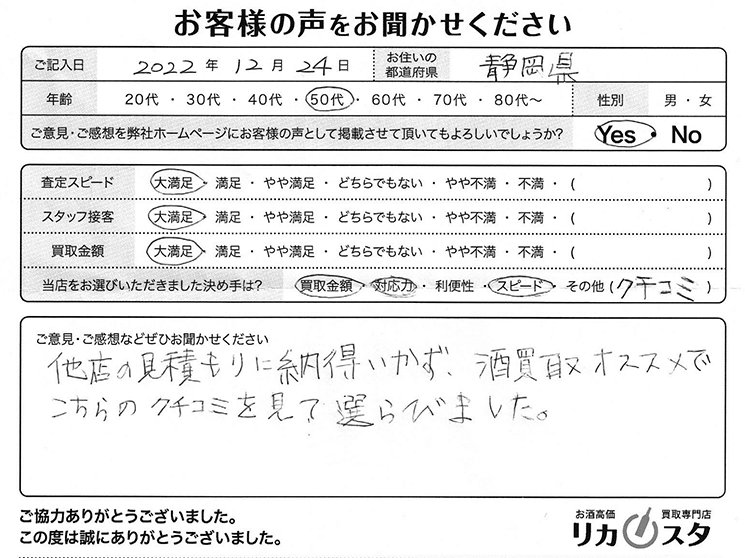 お客様の声をお聞かせください
ご記入日 2022年 12月 24日 お住いの都道府県 静岡県
年齢 20代・30代・40代・50代・60代・70代・80代〜 性別 男・女
ご意見・ご感想を弊社ホームページにお客様の声として掲載させて頂いてもよろしいでしょうか? Yes・No
査定スピード 大満足・満足・やや満足・どちらでもない・やや不満・不満・( )
スタッフ接客 大満足・満足・やや満足・どちらでもない・やや不満・不満・( )
買取金額 大満足・満足・やや満足・どちらでもない・やや不満・不満・( )
当店をお選びいただきました決め手は? 買取金額・対応力・利便性・スピード・その他(クチコミ)
ご意見・ご感想などぜひお聞かせください
他店の見積もりに納得いかず、酒買取オススメで
こちらのクチコミを見て選らびました。
ご協力ありがとうございました。
この度は誠にありがとうございました。
お酒高価 買取専門店
リカスタ